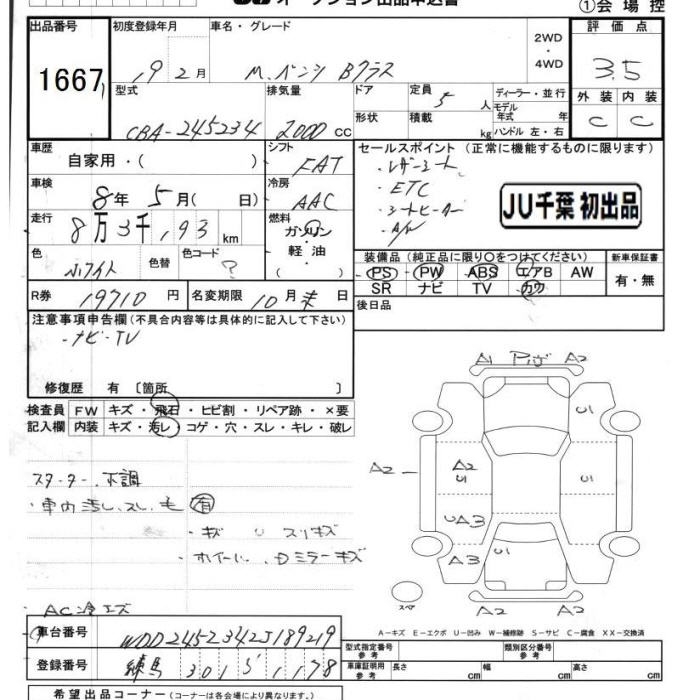 オークション出品申込書
①会場控
出品番号
1667
初度登録年月
19 2月
車名・グレード
M.ベンツ Bクラス
2WD
・
4WD
評価点
3.5
外装 内装
C C
型式
CBA-245234
排気量
2000 CC
ドア
形状
定員
5 人
積載
kg
ディーラー・並行
モデル
年式 年
ハンドル 左・右
車歴
自家用・( )
シフト
FAT
セールスポイント (正常に機能するものに限ります)
・レザーシート
・ETC
・シートヒーター
・A/W
JU千葉 初出品
車検
8年 5月( 日)
冷房
AAC
走行
8万3千,193 km
燃料
ガソリン
・
軽油
( )
色
ホワイト
色替
色コード
?
装備品 (純正品に限り○をつけてください)
PS PW ABS エアB AW
SR ナビ TV カワ
新車保証書
有・無
R券
19710 円
名変期限
10月末日
後日品
注意事項申告欄(不具合内容等は具体的に記入して下さい)
・ナビ・TV
修復歴 有 〔箇所 〕
検査員 FW キズ・飛石・ヒビ割・リペア跡・×要
記入欄 内装 キズ・汚レ・コゲ・穴・スレ・キレ・破レ
A1 A2
U
A2
A2
U
U
UA3
A3
U
A2 A2
スペア
スターター不調
・車内汚レ.スレ.毛 有
・キズ U スリキズ
・ホイール.Dミラーキズ
AC冷エズ
A-キズ E-エクボ U-凹み W-補修跡 S-サビ C-腐食 XX-交換済
車台番号
WDD2452342J189219
登録番号
練馬 301 5 1178
型式指定番号
参考
類別区分番号
参考
車庫証明用
参考
長さ cm 幅 cm 高さ cm
希望出品コーナー (コーナーは各会場により異なります。)